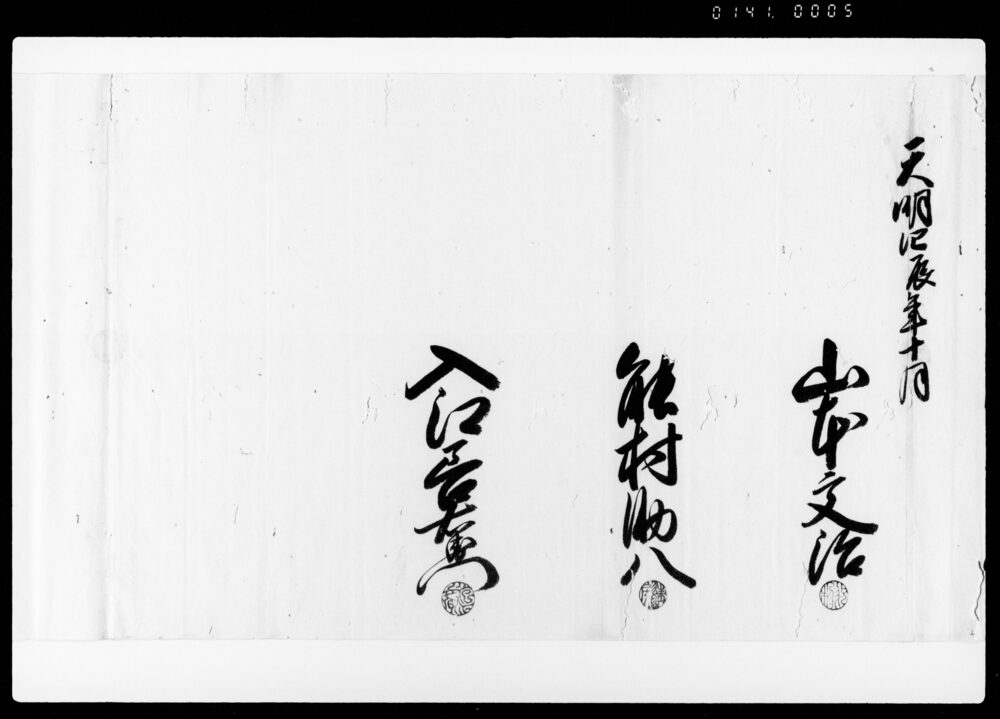 0141. 0005
天明四辰年十月
山本文治
能村助八
入江